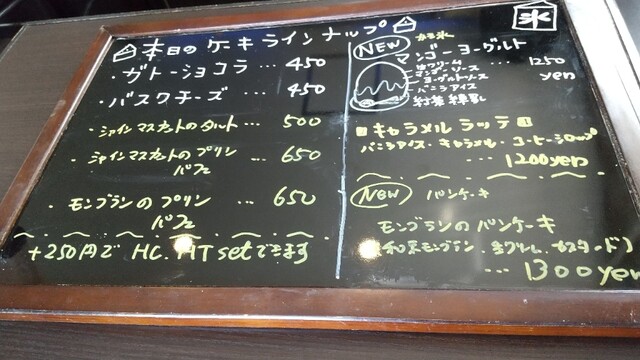 本日のケーキラインナップ
・ガトーショコラ … 450
・バスクチーズ … 450
・シャインマスカットのタルト … 500
・シャインマスカットのプリン … 650
パフェ
・モンブランのプリン … 650
パフェ
+250円で HC.HT setできます
氷
NEW
かき氷
マンゴーヨーグルト
… 1250
yen
マンゴーソース
ヨーグルトソース
バニラアイス
キャラメルラッテ
バニラアイス・キャラメル・コーヒーシロップ
… 1200yen
NEW
パンケーキ
モンブランのパンケーキ
(和栗モンブラン、生クリーム、カスタード)
… 1300yen